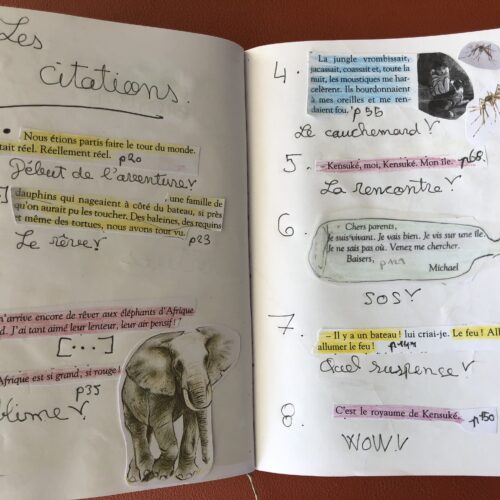 Les
citations.
Nous étions partis faire le tour du monde.
tait réel. Réellement réel. p20
Début de l'aventure!
] une famille de
dauphins qui nageaient à côté du bateau, si près
qu'on aurait pu les toucher. Des baleines, des requins
et même des tortues, nous avons tout vu. p23
Le rêve!
n'arrive encore de rêver aux éléphants d'Afrique
d. J'ai tant aimé leur lenteur, leur air pensif!
[...]
Afrique est si grand, si rouge!
p35
blime!
4. La jungle vrombissait,
jacassait, coassait et, toute la
nuit, les moustiques me har-
celèrent. Ils bourdonnaient
à mes oreilles et me ren-
daient fou. p55
Le cauchemard!
5. – Kensuké, moi, Kensuké. Mon île. p68
La rencontre!
6
Chers parents,
Je suis vivant. Je vais bien. Je vis sur une île.
Je ne sais pas où. Venez me chercher.
Baisers,
Michael
SOS!
7. – Il y a un bateau! lui criai-je. Le feu! All
allumer le feu! p144
Quel suspence!
8. C'est le royaume de Kensuké. p150
WOW!